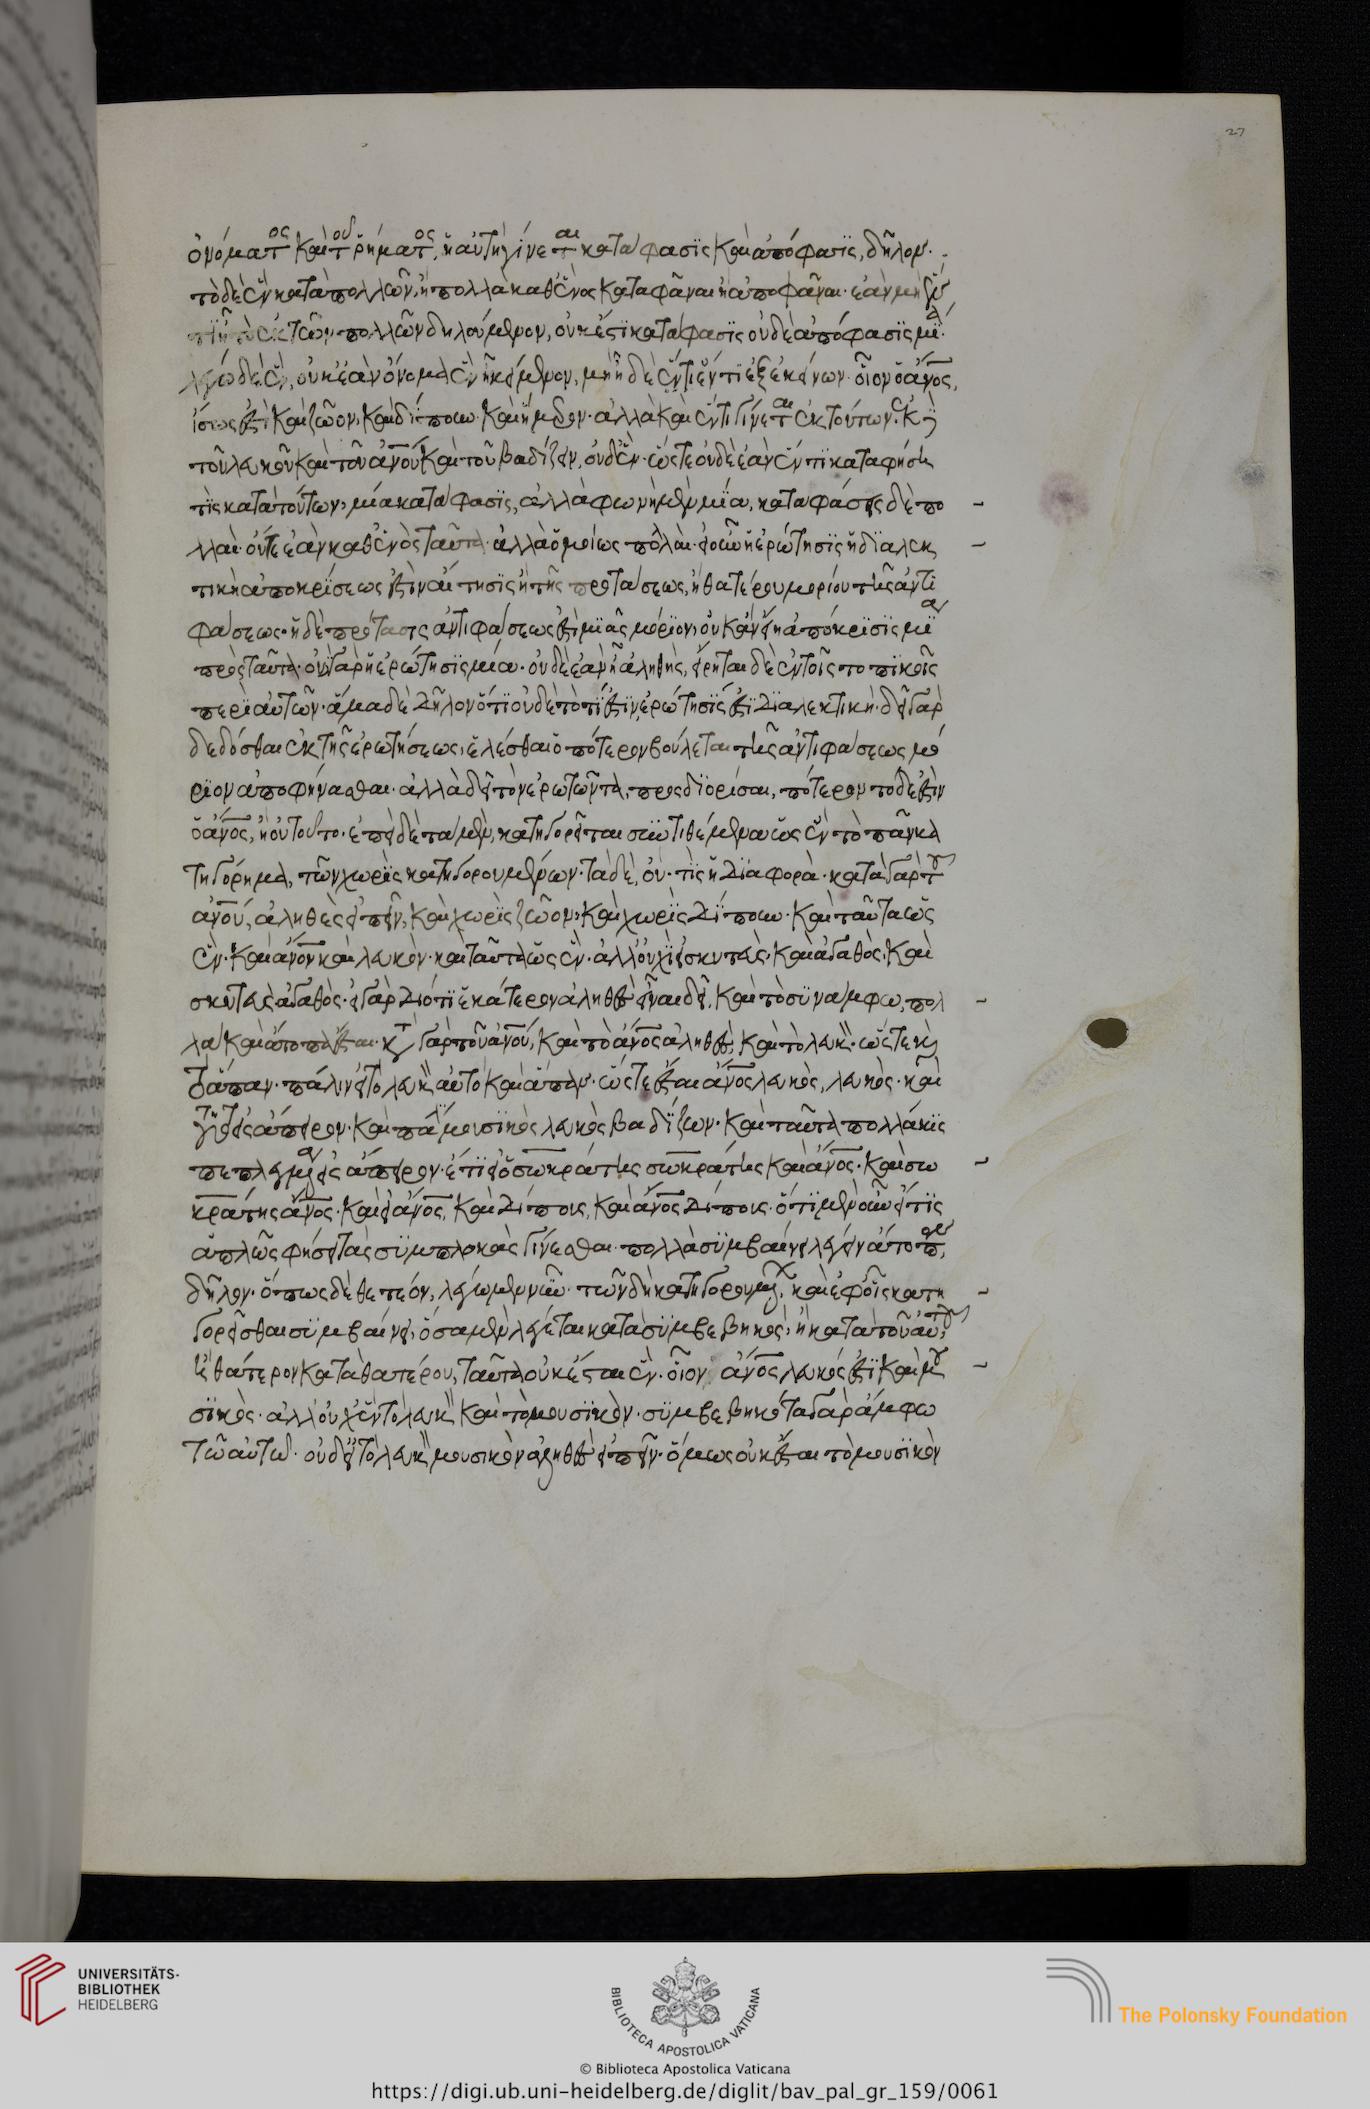 27
ὀνόματος καὶ τοῦ ῥήματος, ἡ αὐτὴ γίνεται κατάφασις καὶ ἀπόφασις, δῆλον.
τὸ δὲ ἓν κατὰ πολλῶν, ἢ πολλὰ καθ' ἑνὸς καταφάναι ἢ ἀποφάναι. ἐὰν μὴ ἕν
τι ἦ τὸ ἐκ τῶν πολλῶν δηλούμενον, οὐκ ἔστι κατάφασις οὐδὲ ἀπόφασις μία.
λέγω δὲ ἓν, οὐκ ἐὰν ὄνομα ἓν ἦ κείμενον, μὴ ἦ δὲ ἕν τι ἐξ ἐκείνων. οἷον ὁ ἄνος,
ἴσως ἐστὶ καὶ ζῶον, καὶ δίπουν καὶ ἥμερον. ἀλλὰ καὶ ἕν τι γίνεται ἐκ τούτων. ἐκ δὲ
τοῦ λευκοῦ καὶ τοῦ ἀνου καὶ τοῦ βαδίζειν, οὐχ ἕν. ὥστε οὐδὲ ἐὰν ἕν τι καταφήση
τὶς κατὰ τούτων, μία κατάφασις, ἀλλὰ φωνὴ μὲν μία, καταφάσεις δὲ πο
λλαί. οὔτε ἐὰν καθ' ἑνὸς ταῦτα. ἀλλὰ ὁμοίως πολλαί. εἰ οὖν ἡ ἐρώτησις ἡ διαλεκ
τικὴ ἀποκρίσεως ἐστὶν αἴτησις ἢ τῆς προτάσεως, ἢ θατέρου μορίου τῆς ἀντι
φάσεως. ἡ δὲ πρότασις ἀντιφάσεως ἐστὶ μιᾶς μόριον, οὐκ ἂν εἴη ἀπόκρισις μία
πρὸς ταῦτα. οὐδὲ γὰρ ἡ ἐρώτησις μία. οὐδὲ ἐὰν ἦ ἀληθής, εἴρηται δὲ ἐν τοῖς τοπικοῖς
περὶ αὐτῶν. ἅμα δὲ δῆλον ὅτι οὐδὲ τὸ τί ἐστιν, ἐρώτησίς ἐστι διαλεκτική. δεῖ γὰρ
δεδόσθαι ἐκ τῆς ἐρωτήσεως, ἑλέσθαι ὁπότερον βούλεται τῆς ἀντιφάσεως μό
ριον ἀποφήνασθαι. ἀλλὰ δεῖ τὸν ἐρωτῶντα, προσδιορίσαι, πότερον τόδε ἐστὶν
ὁ ἄνος, ἢ οὐ τοῦτο. ἐπεὶ δὲ τὰ μὲν, κατηγορεῖται συντιθέμενα ὡς ἓν τὸ πᾶν κα
τηγόρημα, τῶν χωρὶς κατηγορουμένων. τὰ δὲ, οὔ. τὶς ἡ διαφορά. κατὰ γὰρ τοῦ
ἀνου, ἀληθὲς εἰπεῖν, καὶ χωρὶς ζῶον, καὶ χωρὶς δίπουν. καὶ ταῦτα ὡς
ἕν. καὶ ἄνον καὶ λευκὸν. καὶ ταῦτα ὡς ἕν. ἀλλ' οὐχὶ εἰ σκυτεὺς, καὶ ἀγαθὸς, καὶ
σκυτεὺς ἀγαθὸς. εἰ γὰρ διότι ἑκάτερον ἀληθὲς εἶναι δεῖ, καὶ τὸ συνάμφω, πολ
λὰ καὶ ἄτοπα ἔσται. κατὰ γὰρ τοῦ ἀνου, καὶ τὸ ἄνος ἀληθὲς, καὶ τὸ λευκὸν. ὥστε καὶ
τὸ ἅπαν. πάλιν εἰ τὸ λευκὸν αὐτὸ καὶ ἅπαν. ὥστε ἔσται ἄνος λευκὸς, λευκὸς. καὶ
τοῦτο εἰς ἄπειρον. καὶ πάλιν μουσικὸς λευκὸς βαδίζων. καὶ ταῦτα πολλάκις
πεπλεγμένα εἰς ἄπειρον. ἔτι εἰ ὁ σωκράτης σωκράτης καὶ ἄνος. καὶ σω
κράτης ἄνος. καὶ εἰ ἄνος, καὶ δίπους, καὶ ἄνος δίπους. ὅτι μὲν οὖν εἴ τις
ἁπλῶς φήσει τὰς συμπλοκὰς γίνεσθαι. πολλὰ συμβαίνει λέγειν ἄτοπα,
δῆλον. ὅπως δὲ θετέον, λέγωμεν νῦν. τῶν δὴ κατηγορουμένων, καὶ ἐφ' οἷς κατη
γορεῖσθαι συμβαίνει, ὅσα μὲν λέγεται κατὰ συμβεβηκὸς, ἢ κατὰ τοῦ αὐτοῦ,
ἢ θάτερον κατὰ θατέρου, ταῦτα οὐκ ἔσται ἕν. οἷον ἄνος λευκός ἐστι καὶ μου
σικὸς. ἀλλ' οὐχ ἓν τὸ λευκὸν καὶ τὸ μουσικὸν. συμβεβηκότα γὰρ ἄμφω
τῶ αὐτῶ. οὐδ' εἰ τὸ λευκὸν μουσικὸν ἀληθὲς εἰπεῖν. ὅμως οὐκ ἔσται τὸ μουσικὸν
UNIVERSITÄTS-
BIBLIOTHEK
HEIDELBERG
BIBLIOTECA APOSTOLICA VATICANA
The Polonsky Foundation
© Biblioteca Apostolica Vaticana
https://digi.ub.uni-heidelberg.de/diglit/bav_pal_gr_159/0061